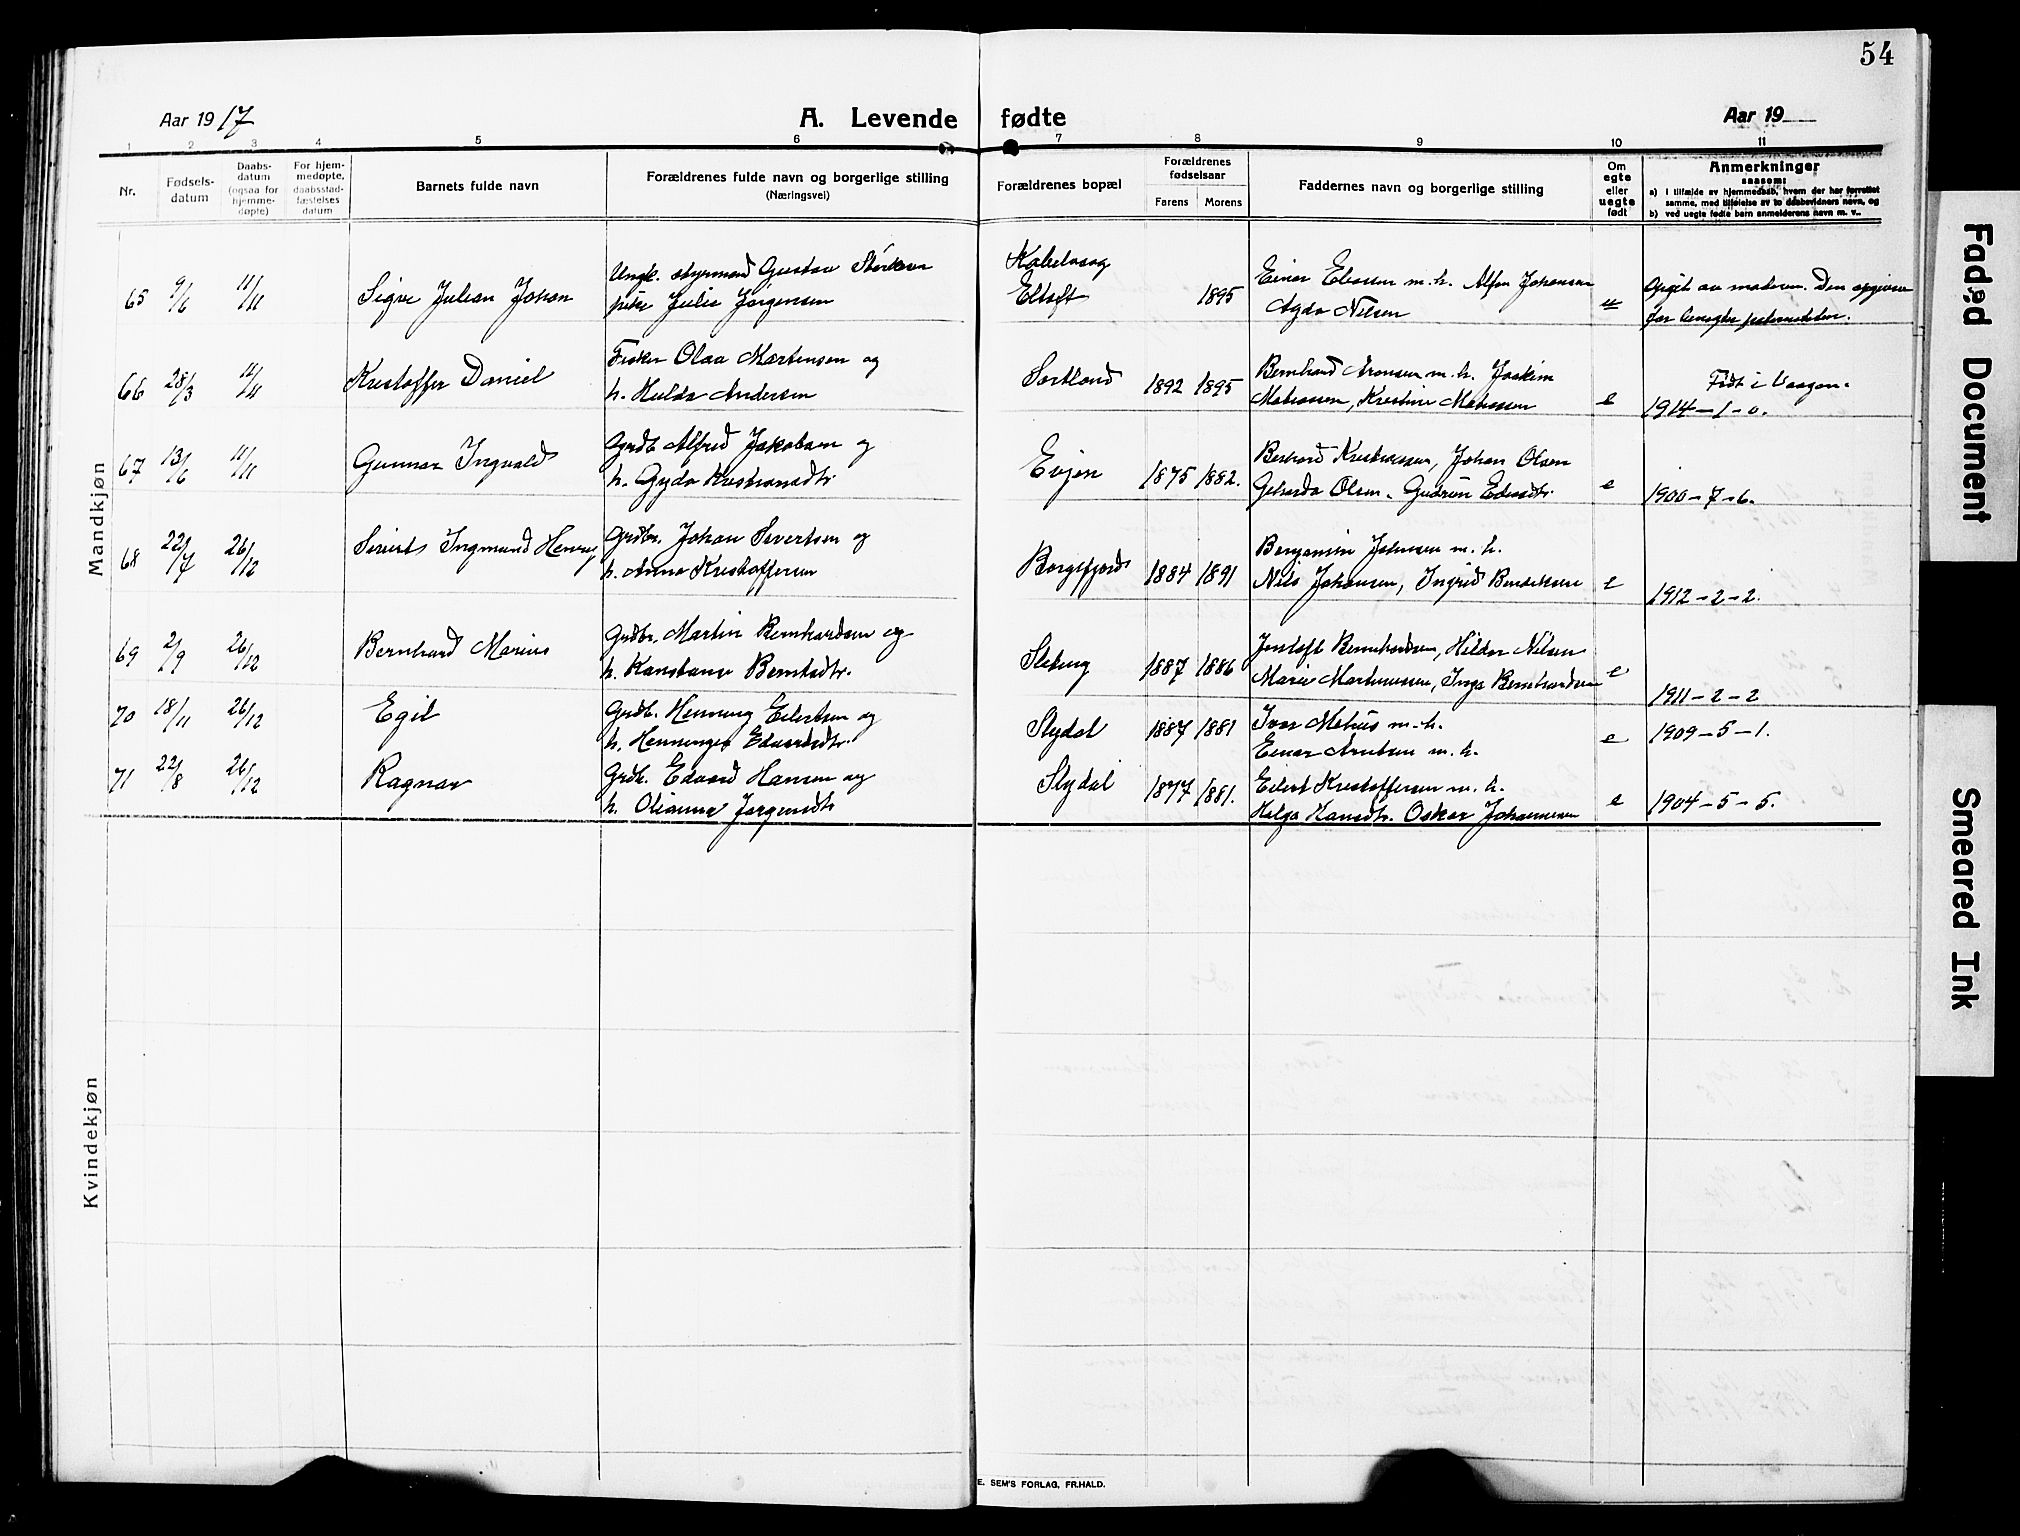 54
Aar 1917
A. Levende fødte
Aar 19
1 2 3 4 5 6 7 8 9 10 11
Nr.
Fødsels-
datum
Daabs-
datum
(ogsaa for
hjemme-
døpte)
For hjem-
medøpte,
daabsstad-
fæstelses
datum
Barnets fulde navn
Forældrenes fulde navn og borgerlige stilling
(Næringsvei)
Forældrenes bopæl
Forældrenes
fødselsaar
Farens Morens
Faddernes navn og borgerlige stilling
Om
egte
eller
uegte
født
Anmerkninger
saasom:
a) i tilfælde av hjemmedaab, hvem der har forrettet
samme, med tilføielse av to daabsvidners navn, og
b) ved uegte fødte barn anmelderens navn m. v..
Mandkjøn
65 9/6 11/11 Sigve Julian Johan
Ungk. styrmand Gustav
pike Julie Jørgensen
Kabelvaag
Eltoft 1895
Einar Eliassen m. h. Alfon Johansen
Agda Nilsen
u
Opgit av moderen. Den opgivne
far benegter paterniteten.
66 28/3 11/11 Kristoffer Daniel
Fisker Olaa Martensen og
h. Hulda Andersen
Sortland 1892 1895
Bernhard Aronsen m. h. Joakim
Matiassen, Kristine Matiassen
e
Født i Vaagan.
1914-1-0.
67 13/6 11/11 Gunnar Ingvald
Grdb. Alfred Jakobsen og
h. Gyda Kristiansdtr.
Evjen 1875 1882.
Kristiansen, Johan Olsen
Olsen, Gudrun
e
1900-7-6.
68 22/7 26/12 Sivert Ingmund Henry
Grdbr. Johan Sivertsen og
h. Anna Kristoffersen
Borgfjord 1884 1891
Benjamin Johnsen m. h.
Nils Johansen, Ingrid Bendiksen
e
1912-2-2.
69 2/9 26/12 Bernhard Marius
Grdbr. Martin Bernhardsen og
h. Konstanse
1887 1886
Jentoft Bernhardsen, Hilda Nilsen
Marie Martinussen, Inga Bernhardsen
e
1911-2-2
70 18/11 26/12 Egil
Grdb. Henning Eilertsen og
h. Henninge Edvardsdtr.
Slydal 1887 1881
Ivar m. h.
Einar Arntsen m. h.
e
1909-5-1.
71 22/8 26/12 Ragnar
Grdb. Edvard Hansen og
h. Olianna Jørgensdtr
Slydal 1877 1881.
Eilert Kristoffersen m. h.
Helga Hansdtr. Oskar Johannessen
e
1904-5-5.
Kvindekjøn
E. SEM'S FORLAG, FR.HALD.
Faded Document
Smeared Ink